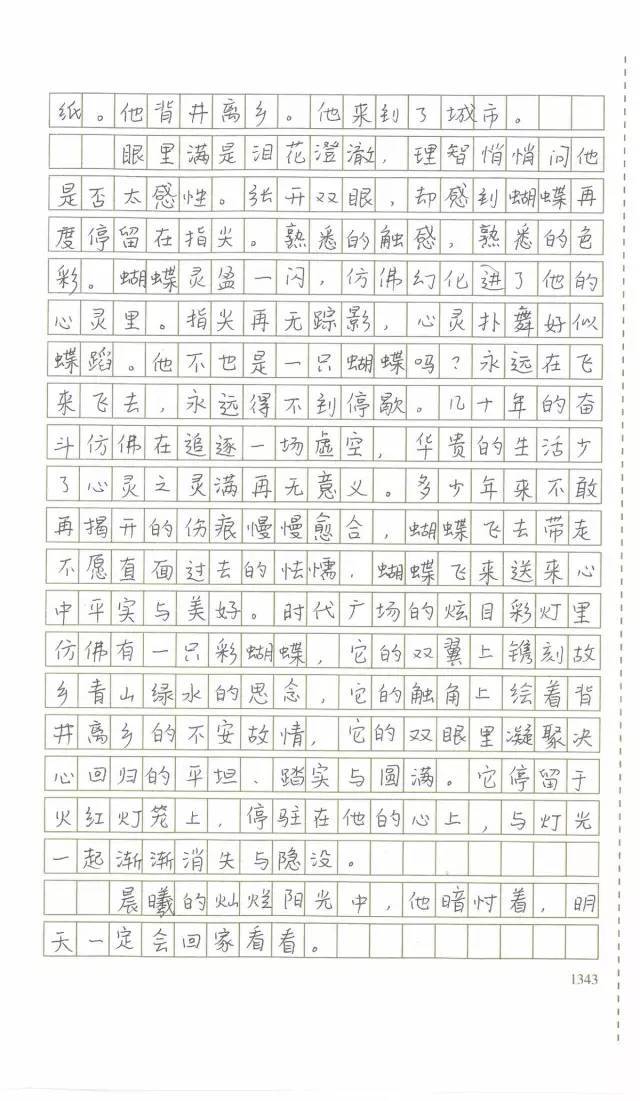 纸。他背井离乡。他来到了城市。
眼里满是泪花澄澈，理智悄悄问他
是否太感性。张开双眼，却感到蝴蝶再
度停留在指尖。熟悉的触感，熟悉的色
彩。蝴蝶灵盈一闪，仿佛幻化进了他的
心灵里。指尖再无踪影，心灵扑舞好似
蝶蹈。他不也是一只蝴蝶吗？永远在飞
来飞去，永远得不到停歇。几十年的奋
斗仿佛在追逐一场虚空，华贵的生活少
了心灵之灵满再无意义。多少年来不敢
再揭开的伤痕慢慢愈合，蝴蝶飞去带走
不愿直面过去的怯懦，蝴蝶飞来送来心
中平实与美好。时代广场的炫目彩灯里
仿佛有一只彩蝴蝶，它的双翼上镌刻故
乡青山绿水的思念，它的触角上绘着背
井离乡的不安故情，它的双眼里凝聚决
心回归的平坦、踏实与圆满。它停留于
火红灯笼上，停驻在他的心上，与灯光
一起渐渐消失与隐没。
晨曦的灿烂阳光中，他暗忖着，明
天一定会回家看看。
1343